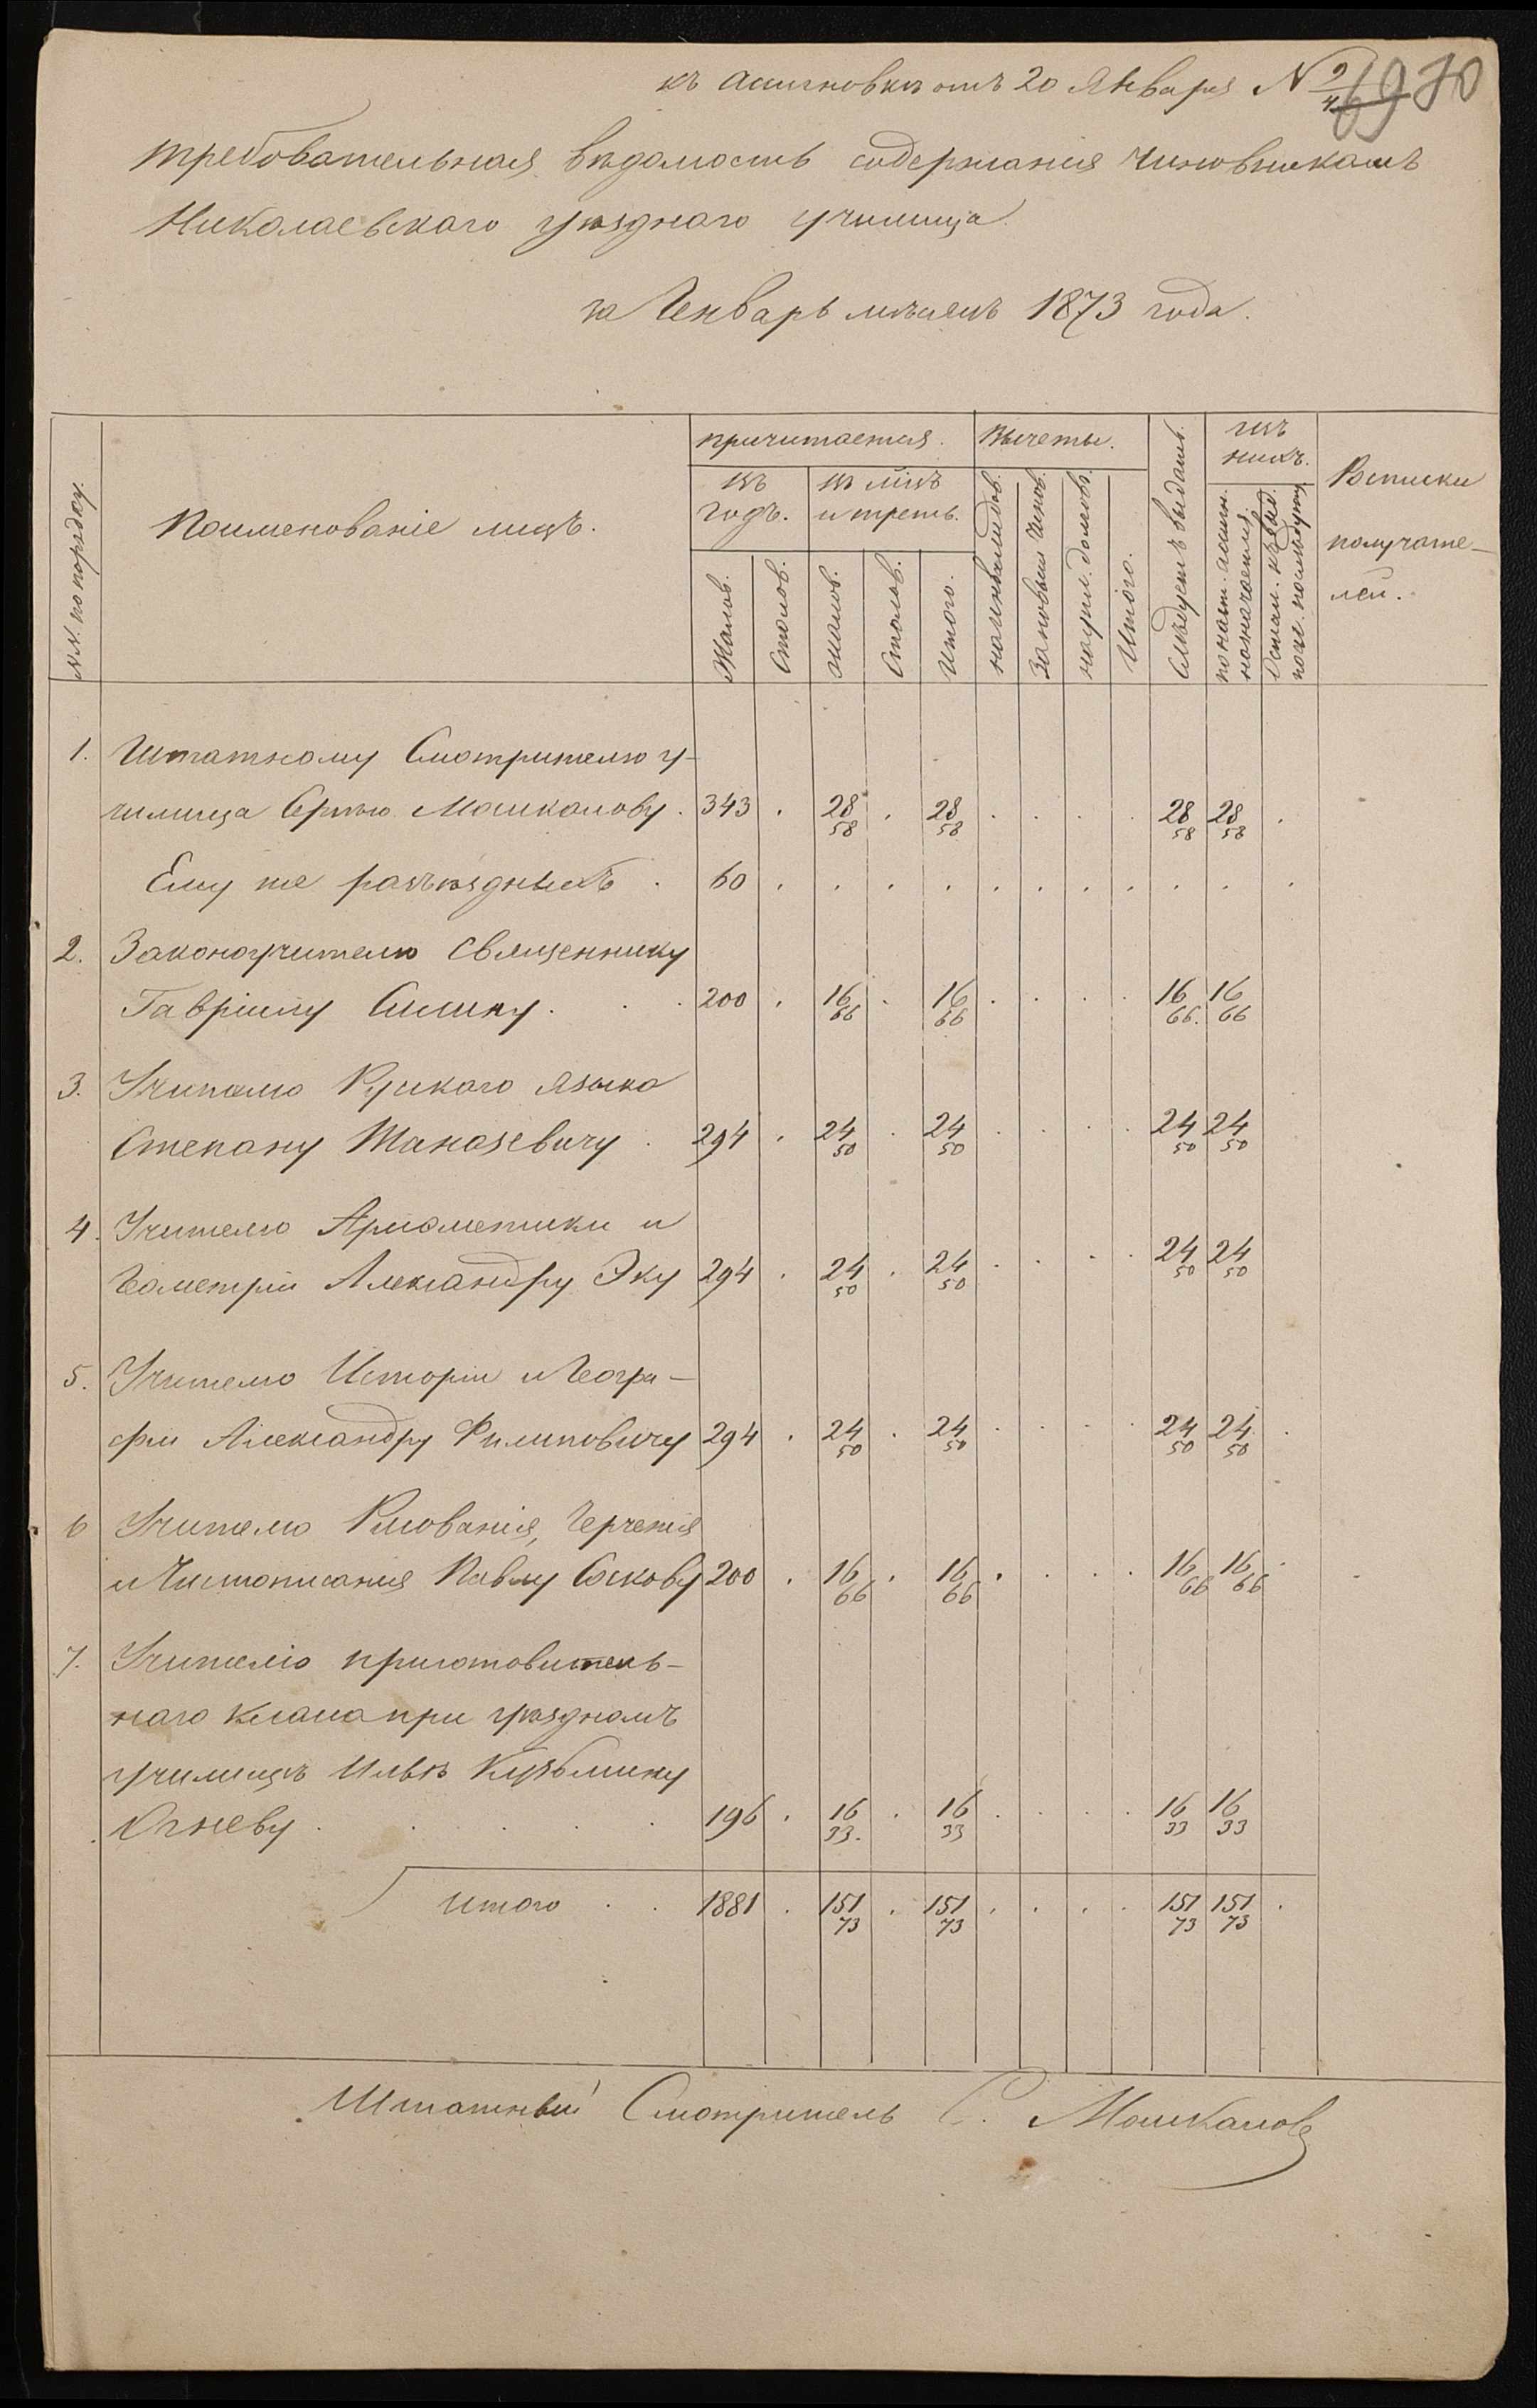 къ асигновкѣ отъ 20 Января № 2/4
69 70
Требовательная вѣдомость содержанія чиновникамъ
Николаевскаго уѣзднаго училища
за Генварь мѣсяцъ 1873 года.
№№ по порядку.
Поименованіе лицъ.
причитается.
Вычеты.
Слѣдуетъ выдать.
изъ
нихъ.
Росписки
получате-
лей.
въ
годъ.
въ м͠цъ
и треть.
Жалов.
Столов.
жалов.
Столов.
Итого.
на инвалидов.
За новый чинов.
Итого.
по наст. ассигн.
назначается
1. Штатному Смотрителю у-
чилища Сергѣю Машкалову . 343 . 28 58 . 28 58 . . . . 28 58 28 58 .
Ему же разъѣздныхъ . 60 . . . . . . . . . . .
2. Законоучителю Священнику
Гавріилу Силину . . . 200 . 16 66 . 16 66 . . . . 16 66. 16 66
3. Учителю Рускаго языка
Степану Маназевичу . 294 . 24 50 . 24 50 . . . . 24 50 24 50
4. Учителю Ариөметики и
Геометріи Александру Эку 294 . 24 50 . 24 50 . . . . 24 50 24 50
5. Учителю Исторіи и Геогра-
фіи Александру Филиповичу 294 . 24 50 . 24 50 . . . . 24 50 24 50 .
6 Учителю Рисованія, Черченія
и Чистописанія Павлу Оскову 200 . 16 66 . 16 66 . . . . 16 66 16 66 .
7. Учителю приготовитель-
наго класа при уѣздномъ
училищѣ Ильѣ Кузьмину
Огневу . . . . . 196 . 16 33. . 16 33 . . . . 16 33 16 33
Итого . . 1881 . 151 73 . 151 73 . . . . 151 73 151 73 .
Штатный Смотритель С. Машкаловъ